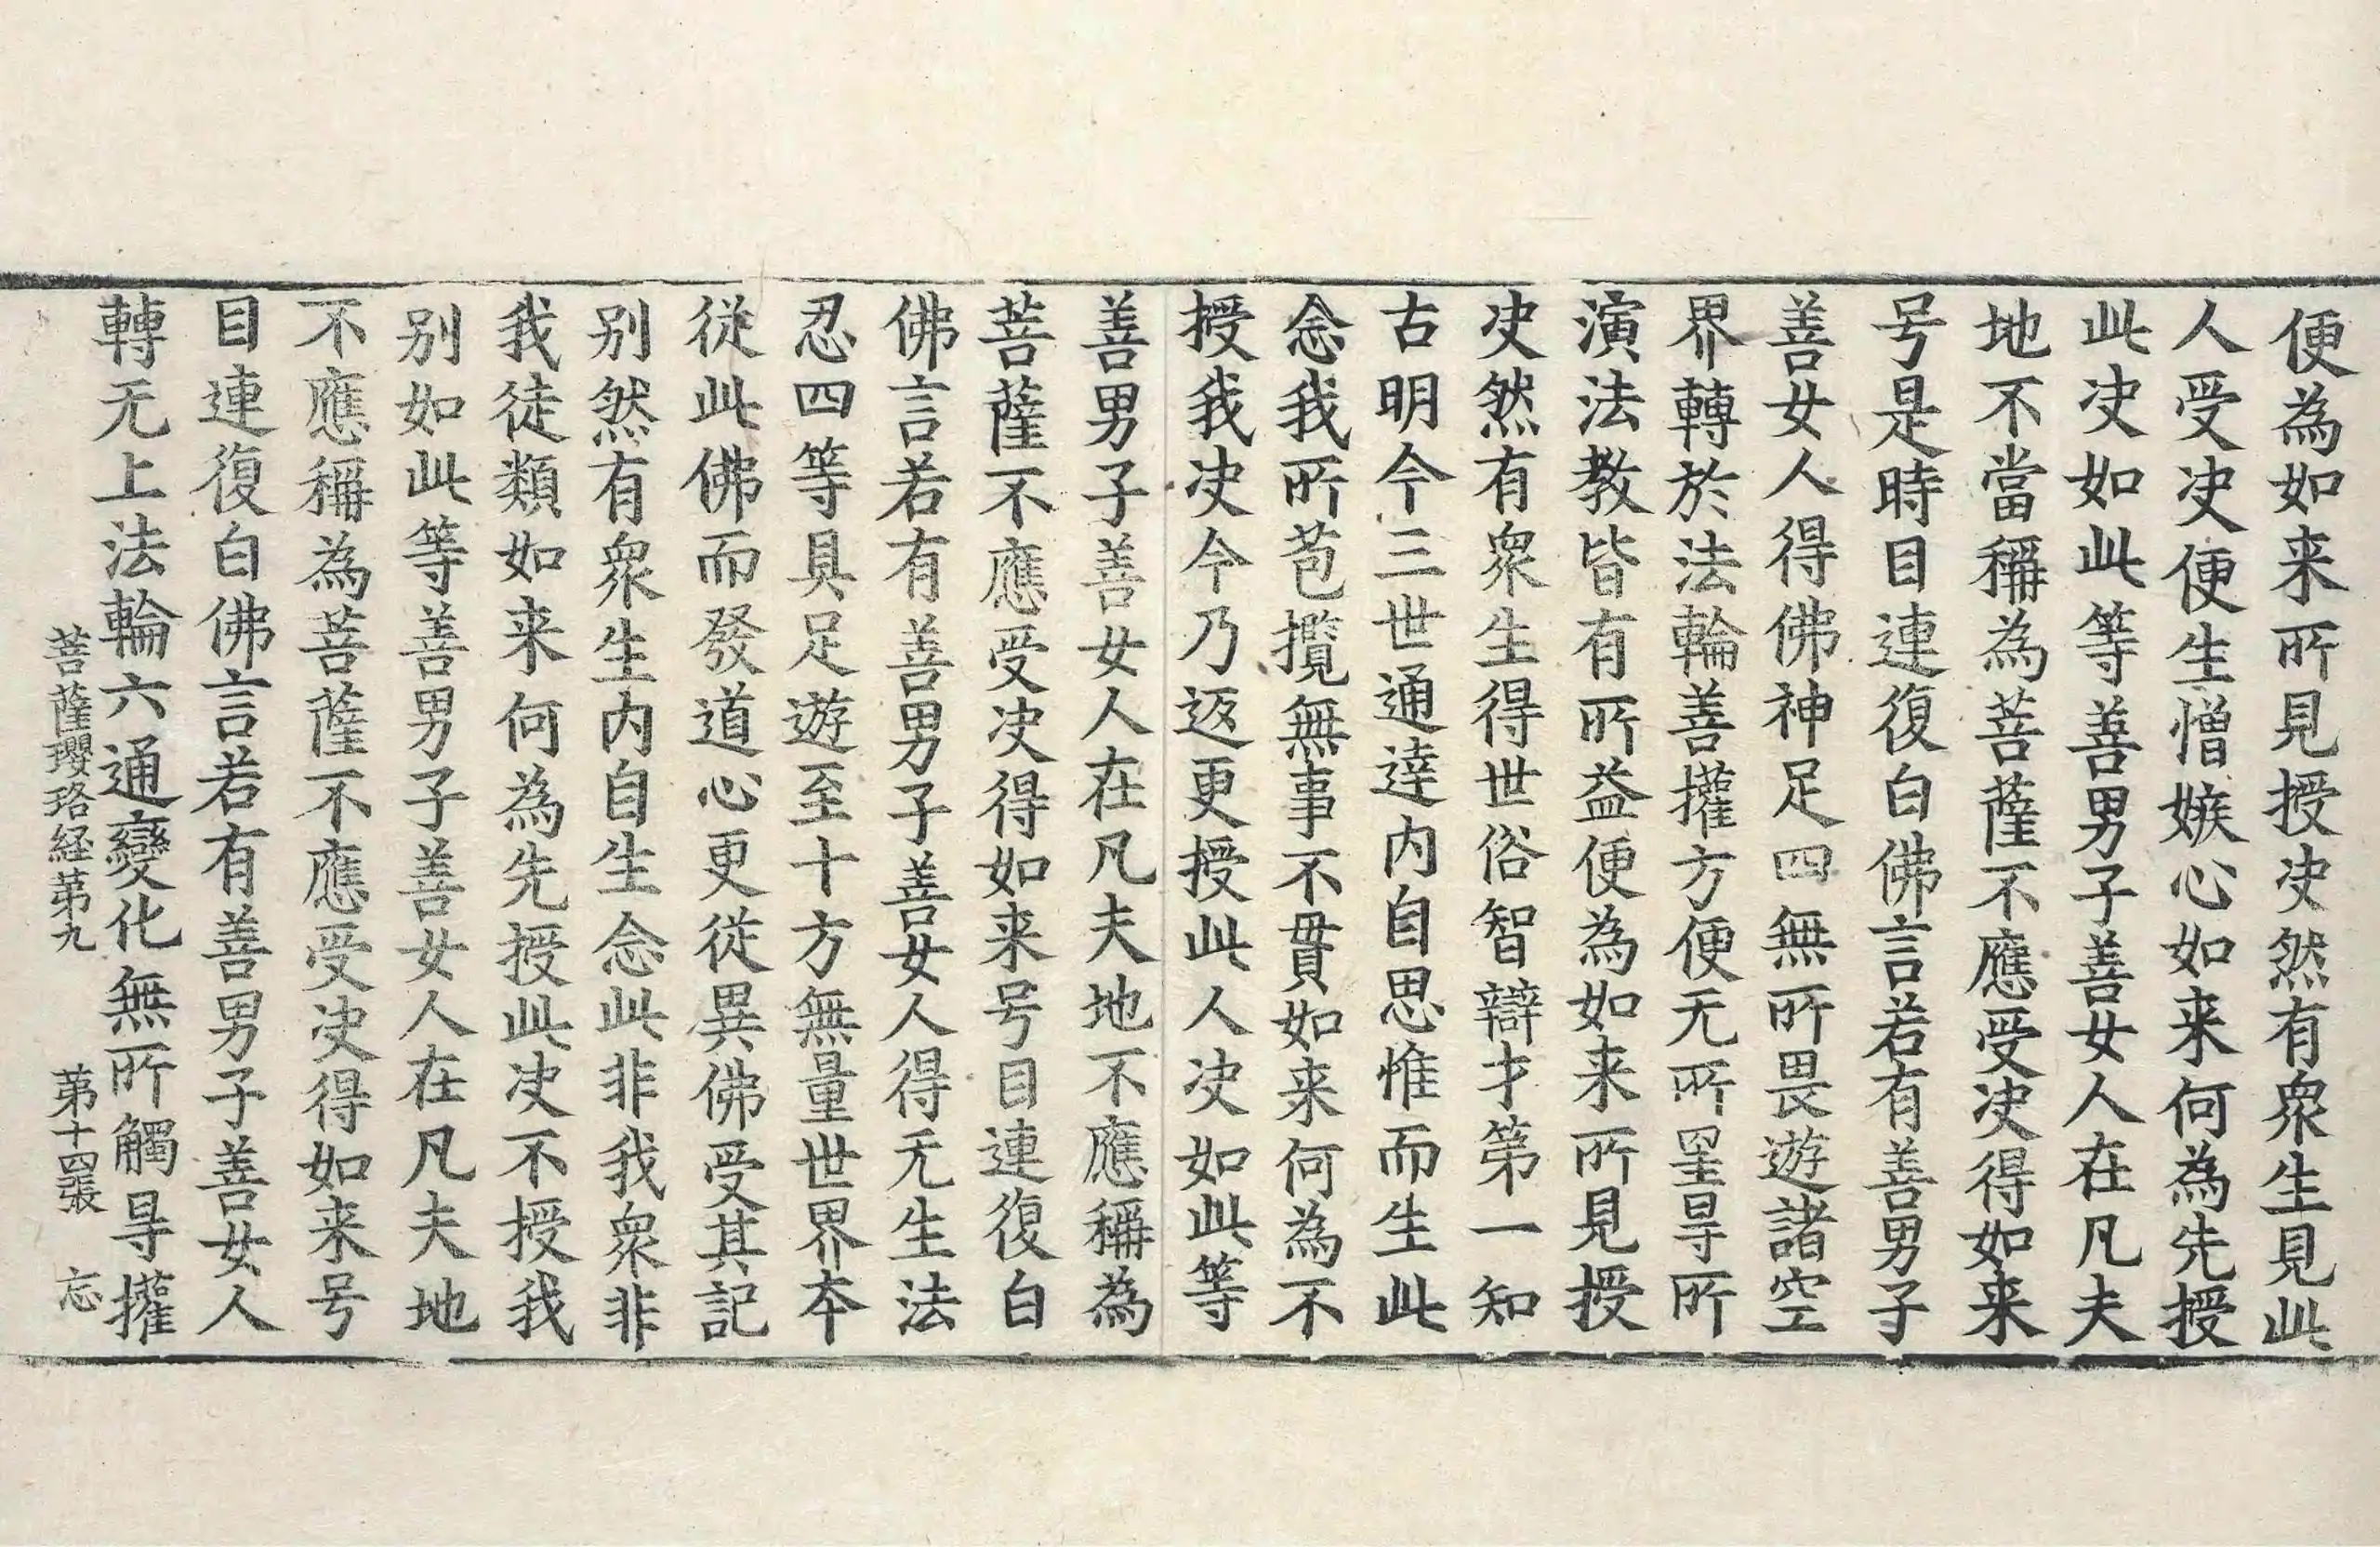 便為如来所見授决然有衆生見此
人受决便生憎嫉心如来何為先授
此决如此等善男子善女人在凡夫
地不當稱為菩薩不應受决得如来
号是時目連復白佛言若有善男子
善女人得佛神足四無所畏遊諸空
界轉於法輪善權方便无所罣㝵所
演法教皆有所益便為如来所見授
决然有衆生得世俗智辯才第一知
古明今三世通達内自思惟而生此
念我所苞攬無事不貫如来何為不
授我决今乃返更授此人决如此等
善男子善女人在凡夫地不應稱為
菩薩不應受决得如来号目連復白
佛言若有善男子善女人得无生法
忍四等具足遊至十方無量世界本
從此佛而發道心更從異佛受其記
别然有衆生内自生念此非我衆非
我徒類如来何為先授此决不授我
别如此等善男子善女人在凡夫地
不應稱為菩薩不應受决得如来号
目連復白佛言若有善男子善女人
轉无上法輪六通變化無所觸㝵權
菩薩瓔珞経第九 第十四張 忘